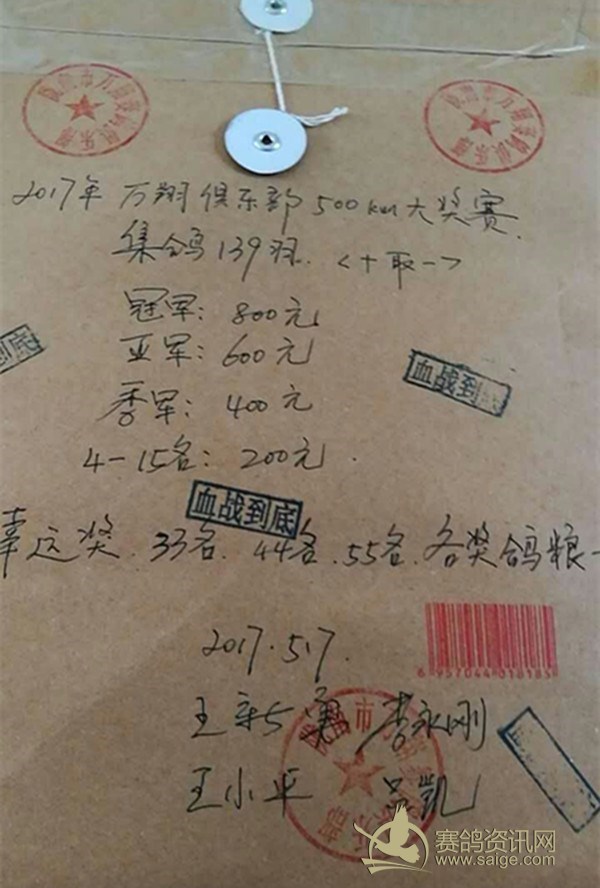 2017年 万翔俱乐部 500km大奖赛.
集鸽139羽. <十取一>
冠军: 800元
亚军: 600元
季军: 400元
血战到
4-15名: 200元.
血战到底
幸运奖. 33名. 44名. 55名. 各奖鸽粮一
2017.5.17.
6 957044 018185
李永刚
王小平 吕凯
赛鸽资讯网
www.saige.com